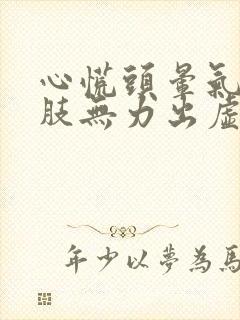 心慌頭暈氣
肢無力出虛
年少以夢為馬